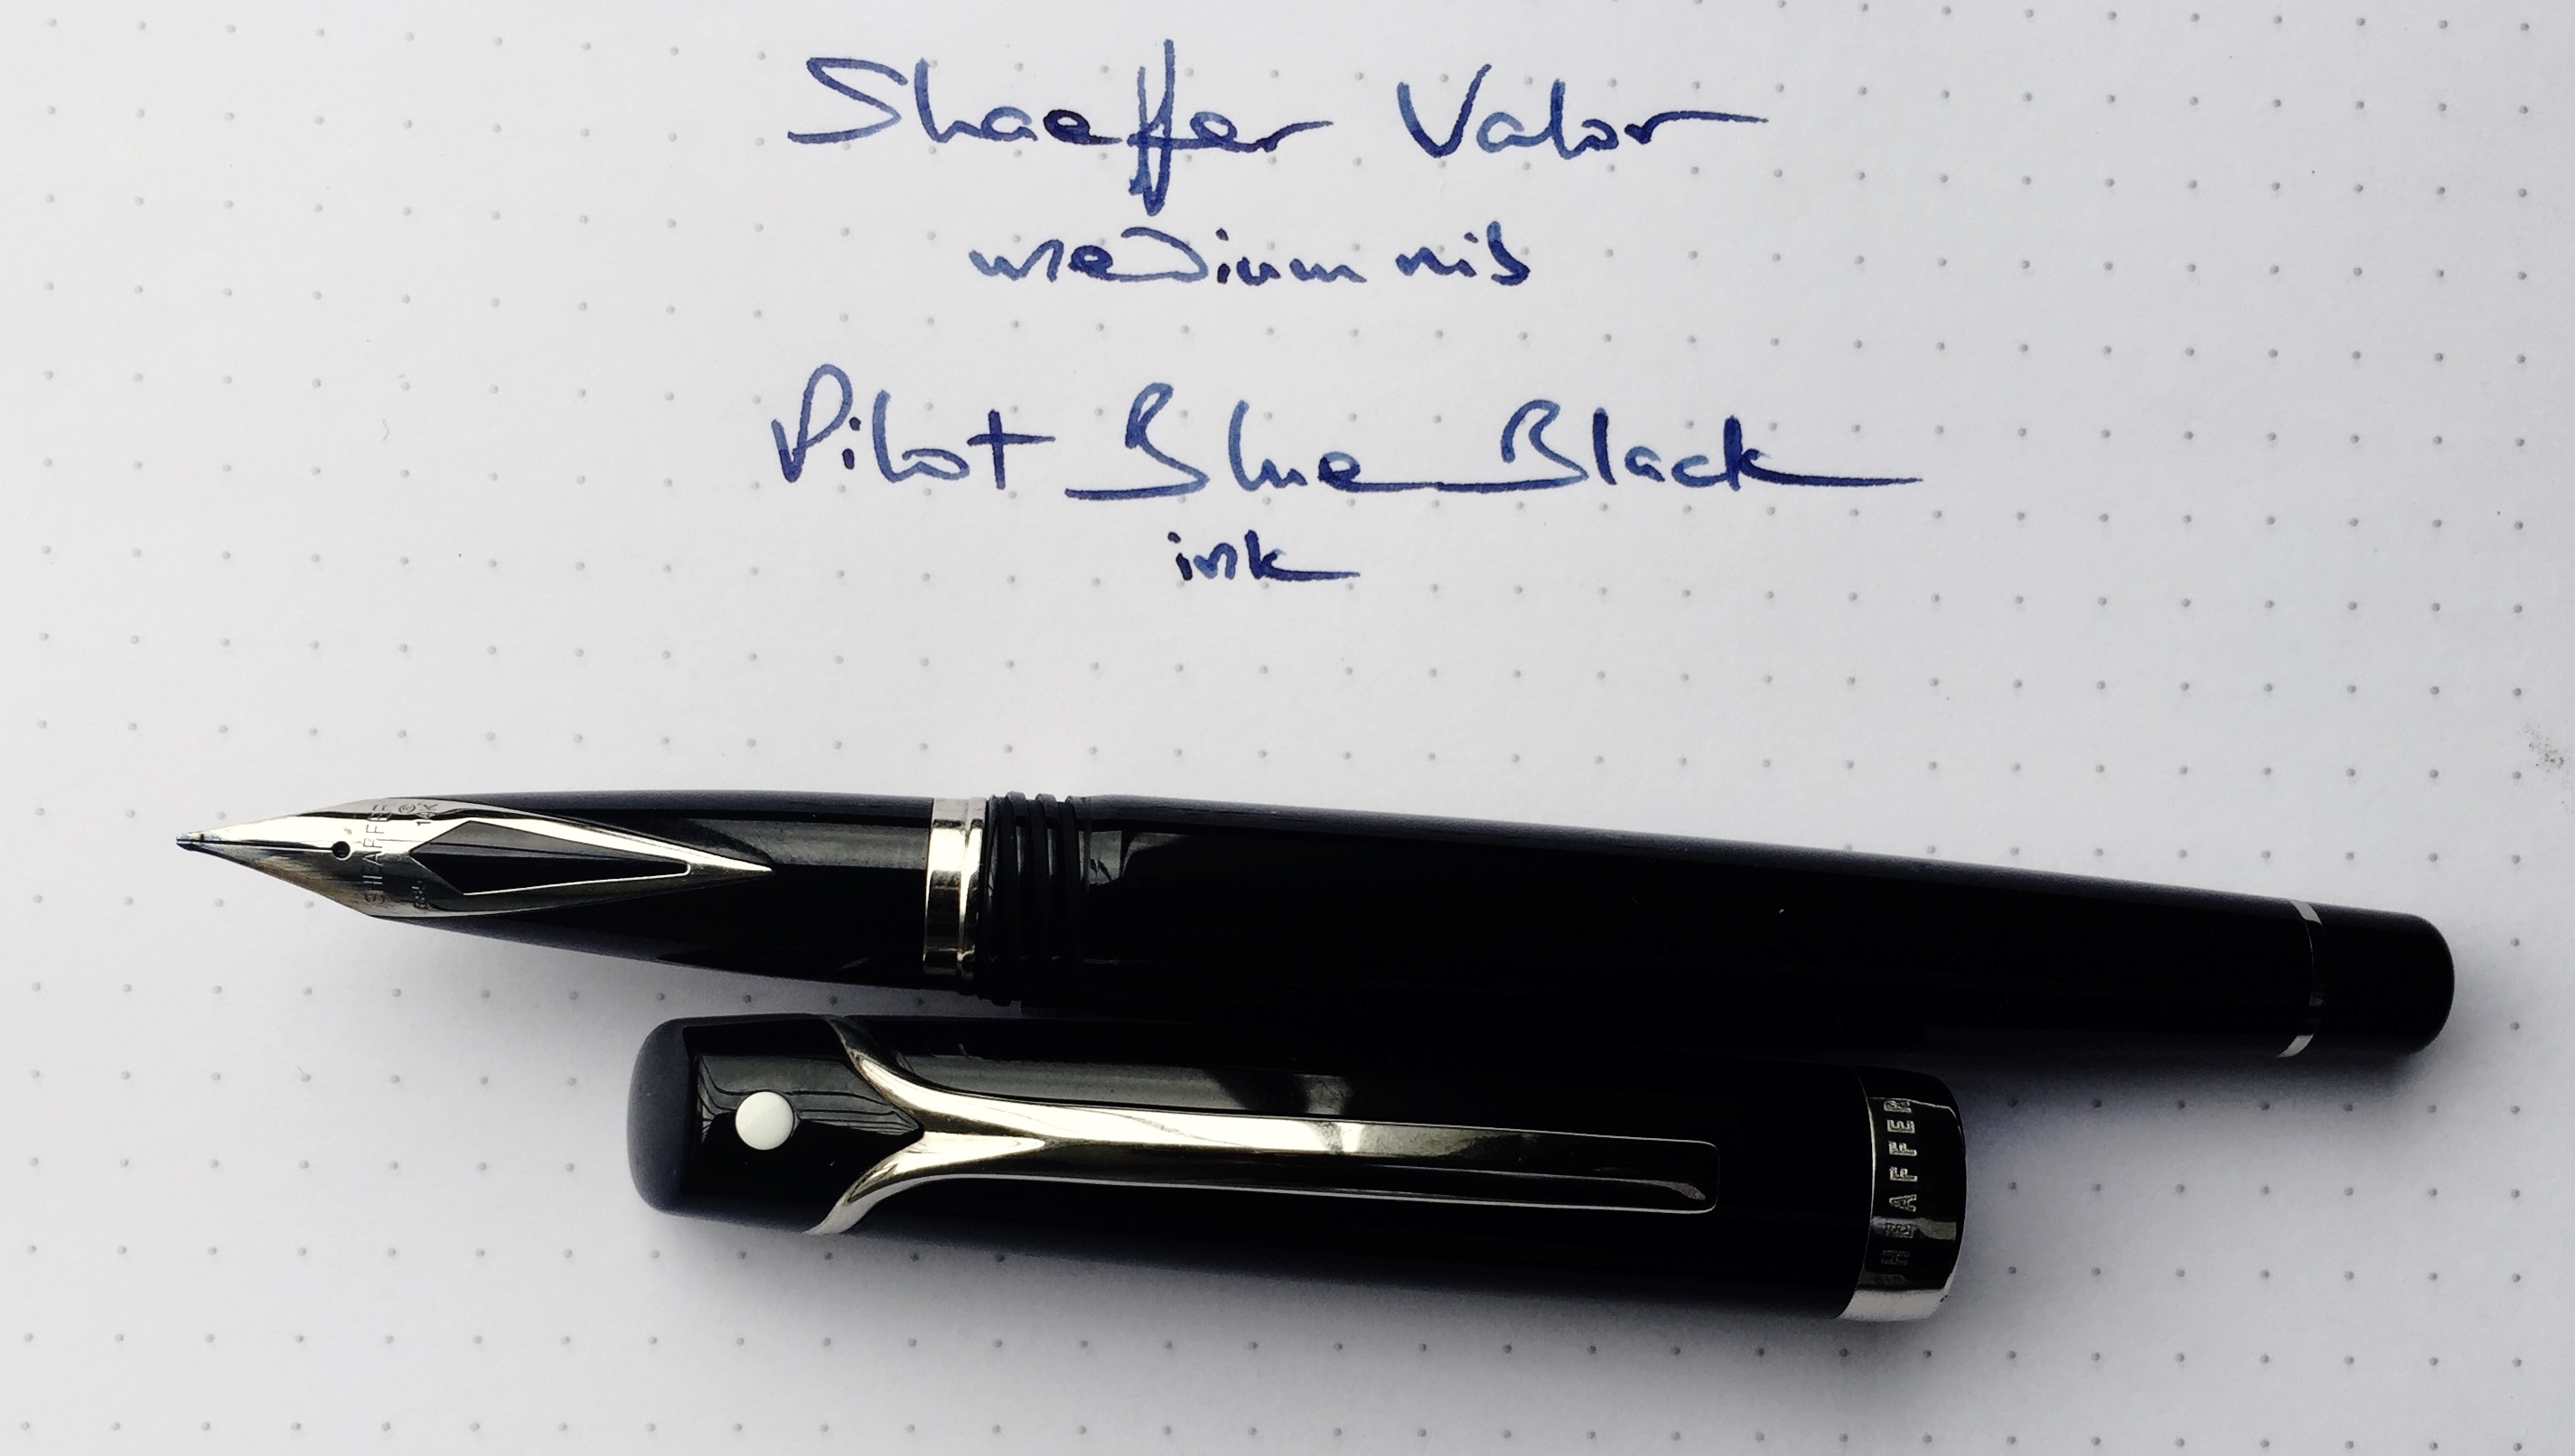 Shaeffer Valor
medium nib
Pilot Blue Black
ink
SHEAFFER
14K
HEAFFER